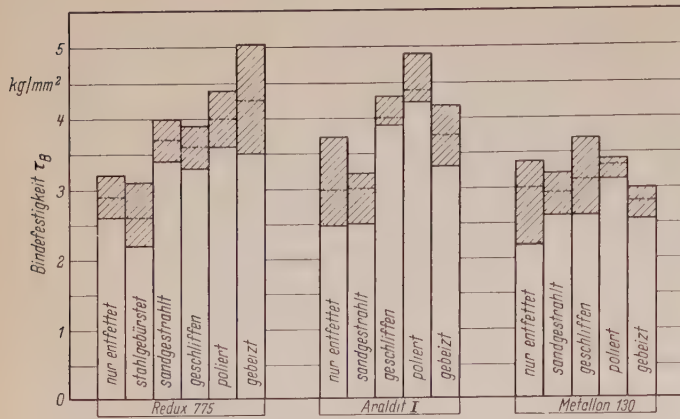 5
kg/mm²
4
3
2
1
0
Bindefestigkeit τB
nur entfettet
stahlgebürstet
sandgestrahlt
geschliffen
poliert
gebeizt
Redux 775
nur entfettet
sandgestrahlt
geschliffen
poliert
gebeizt
Araldit I
nur entfettet
sandgestrahlt
geschliffen
poliert
gebeizt
Metallon 130